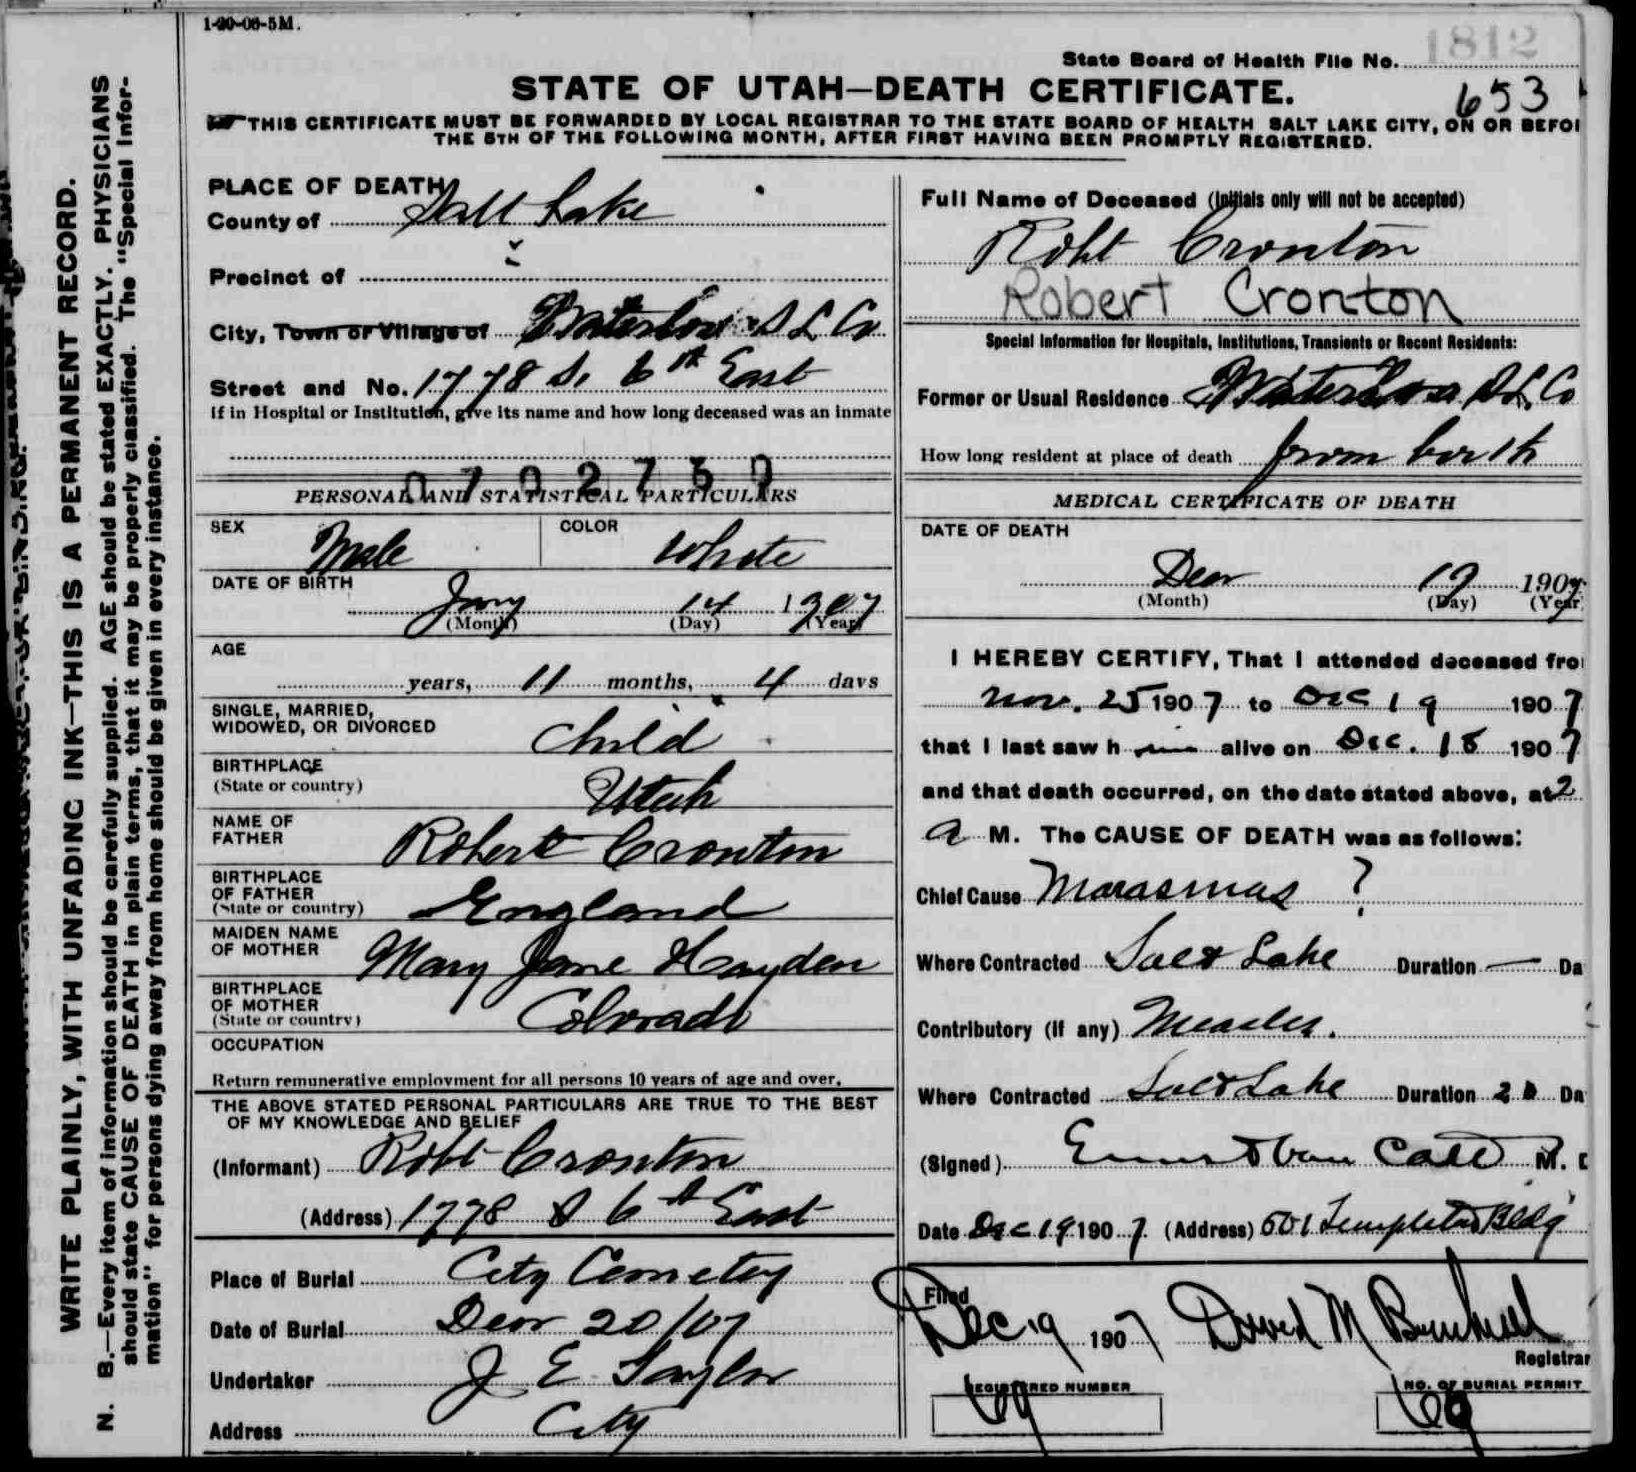 1-20-06-5M.
1812
State Board of Health File No.
STATE OF UTAH—DEATH CERTIFICATE.
653
THIS CERTIFICATE MUST BE FORWARDED BY LOCAL REGISTRAR TO THE STATE BOARD OF HEALTH SALT LAKE CITY, ON OR BEFO
THE 5TH OF THE FOLLOWING MONTH, AFTER FIRST HAVING BEEN PROMPTLY REGISTERED.
WRITE PLAINLY, WITH UNFADING INK—THIS IS A PERMANENT RECORD.
N. B.—Every item of information should be carefully supplied. AGE should be stated EXACTLY. PHYSICIANS
should state CAUSE OF DEATH in plain terms, that it may be properly classified. The "Special Infor-
mation" for persons dying away from home should be given in every instance.
PLACE OF DEATH
County of Salt Lake
Precinct of
City, Town or Village of Waterloo S L Co
Street and No. 1778 S. 6th East
If in Hospital or Institution, give its name and how long deceased was an inmate
PERSONAL AND STATISTICAL PARTICULARS
SEX Male COLOR White
DATE OF BIRTH
Jany 14 1907
(Month) (Day) (Year)
AGE
years, 11 months, 4 days
SINGLE, MARRIED,
WIDOWED, OR DIVORCED Child
BIRTHPLACE
(State or country) Utah
NAME OF
FATHER Robert Cronton
BIRTHPLACE
OF FATHER
(State or country) England
MAIDEN NAME
OF MOTHER Mary Jane Hayden
BIRTHPLACE
OF MOTHER
(State or country) Colorado
OCCUPATION
Return remunerative employment for all persons 10 years of age and over.
THE ABOVE STATED PERSONAL PARTICULARS ARE TRUE TO THE BEST
OF MY KNOWLEDGE AND BELIEF
(Informant) Robt Cronton
(Address) 1778 S 6th East
Place of Burial City Cemetery
Date of Burial Decr 20/07
Undertaker J E Taylor
Address City
Full Name of Deceased (Initials only will not be accepted)
Robt Cronton
Robert Cronton
Special Information for Hospitals, Institutions, Transients or Recent Residents:
Former or Usual Residence Waterloo S L Co
How long resident at place of death from birth
MEDICAL CERTIFICATE OF DEATH
DATE OF DEATH
Decr 19 1907
(Month) (Day) (Year
I HEREBY CERTIFY, That I attended deceased fro
Nov. 25 1907 to Dec 19 1907
that I last saw h im alive on Dec. 18 1907
and that death occurred, on the date stated above, at 2
a M. The CAUSE OF DEATH was as follows:
Chief Cause Marasmus ?
Where Contracted Salt Lake Duration — Da
Contributory (if any) Measles.
Where Contracted Salt Lake Duration Da
(Signed) Ernest Van Cott M. D
Date Dec 19 1907. (Address) 501 Templeton Bldg
Filed
Dec 19 1907 David M
Registrar
REGISTERED NUMBER
69
NO. OF BURIAL PERMIT
69